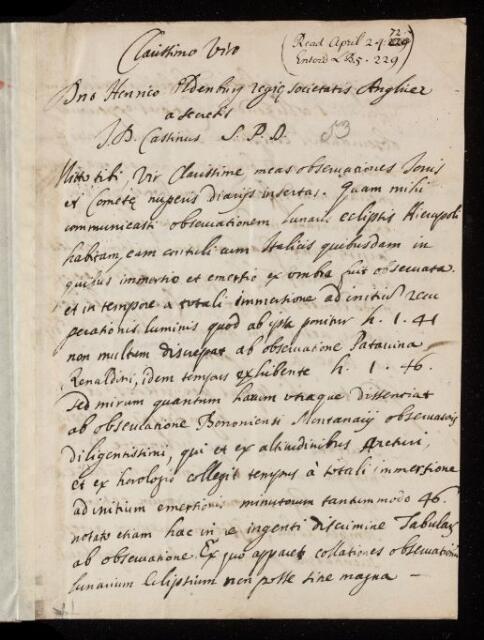 Clarissimo Viro
(Read April 24. 72.
Enterd L B 5. 229)
Dno Henrico Oldenburg regię societatis Angliæ
a secretis
J. D. Cassinus S. P. D.
53
Mitto tibi Vir Clarissime meas observationes Jovis
et Cometę nuperis diariis insertas. Quam mihi
communicasti observationem lunaris eclipsis
habitam, eam contuli cum Italicis quibusdam in
quibus immersio et emersio ex umbra fuit observata.
et in tempore a totali immersione ad initiũ recu
perationis luminis quod ab ipsa ponitur h. 1. 41
non multum discrepat ab observatione Patavina
Renaldini, idem tempus exhibente h. 1. 46.
Sed mirum quantum harum utraque dissentiat
ab observatione Bononiensi Montanarij observatoris
diligentissimi, qui et ex altitudinibus Arcturi,
et ex horologio collegit tempus à totali immersione
ad initium emersionis minutorum tantummodo 46.
notato etiam hac in re ingenti discrimine Tabularũ
ab observatione. Ex quo apparet collationes observationũ
lunarium Eclipsium non posse sine magna –